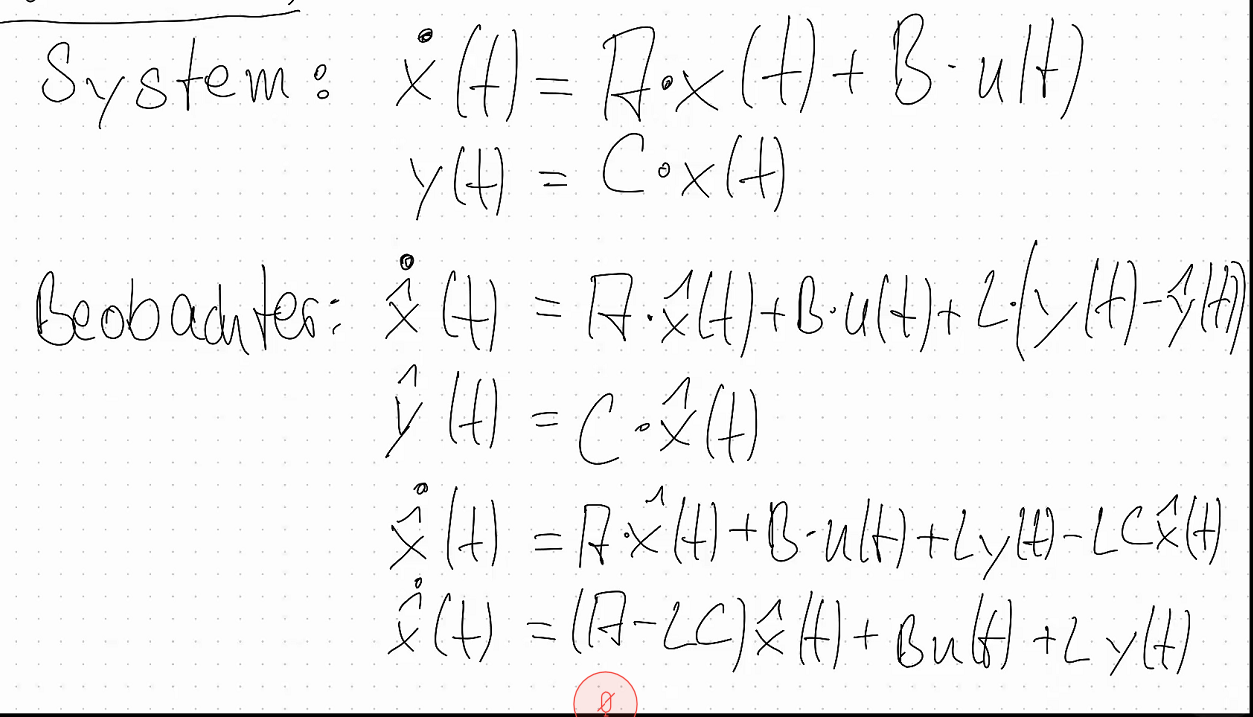 System: ẋ(t) = A·x(t) + B·u(t)
y(t) = C·x(t)
Beobachter: x̂̇(t) = A·x̂(t) + B·u(t) + L·(y(t) - ŷ(t))
ŷ(t) = C·x̂(t)
x̂̇(t) = A·x̂(t) + B·u(t) + Ly(t) - LCx̂(t)
x̂̇(t) = (A-LC)x̂(t) + Bu(t) + Ly(t)